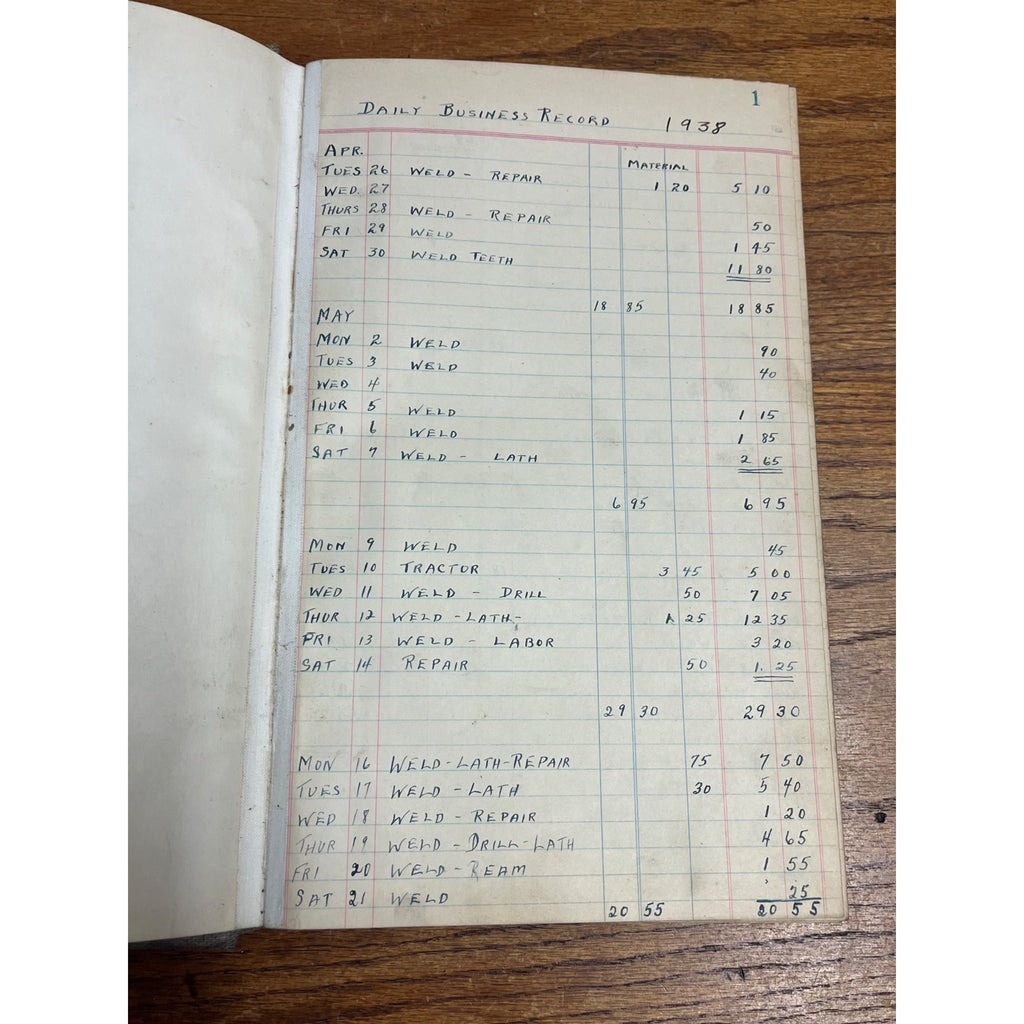 1
DAILY BUSINESS RECORD 1938
APR. MATERIAL
TUES 26 WELD - REPAIR 1 20 5 10
WED. 27
THURS 28 WELD - REPAIR 50
FRI 29 WELD 1 45
SAT 30 WELD TEETH 11 80
18 85 18 85
MAY
MON 2 WELD 90
TUES 3 WELD 40
WED 4
THUR 5 WELD 1 15
FRI 6 WELD 1 85
SAT 7 WELD - LATH 2 65
6 95 6 95
MON 9 WELD 45
TUES 10 TRACTOR 3 45 5 00
WED 11 WELD - DRILL 50 7 05
THUR 12 WELD - LATH - 25 12 35
FRI 13 WELD - LABOR 3 20
SAT 14 REPAIR 50 1. 25
29 30 29 30
MON 16 WELD-LATH-REPAIR 75 7 50
TUES 17 WELD - LATH 30 5 40
WED 18 WELD - REPAIR 1 20
THUR 19 WELD - DRILL-LATH 4 65
FRI 20 WELD - REAM 1 55
SAT 21 WELD 25
20 55 20 55